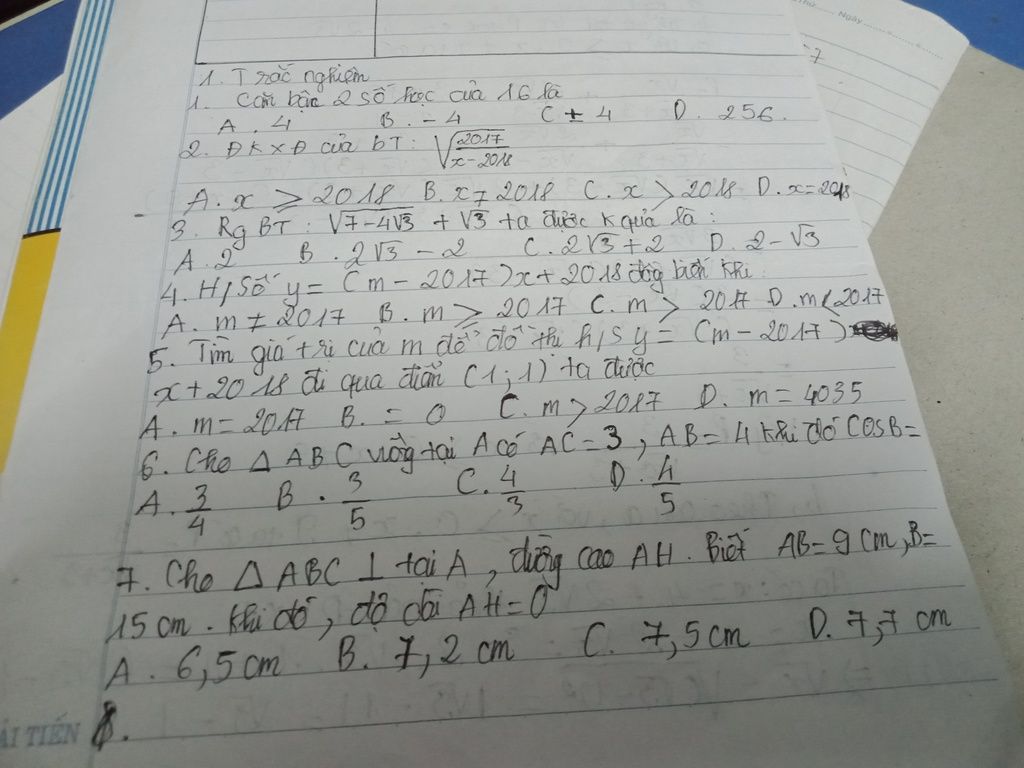 1. Trắc nghiệm
1. Căn bậc 2 số học của 16 là
A. 4 B. -4 C ± 4 D. 256.
2. ĐKXĐ của bT: √(2017/(x-2018))
A. x ≥ 2018 B. x ≠ 2018 C. x > 2018 D. x = 2018
3. Rg BT: √(7-4√3) + √3 ta được k quả là:
A. 2 B. 2√3 - 2 C. 2√3 + 2 D. 2 - √3
4. H/Số y = (m - 2017)x + 2018 đồng biến khi
A. m ≠ 2017 B. m ≥ 2017 C. m > 2017 D. m < 2017
5. Tìm giá trị của m để đồ thị h/s y = (m - 2017)
x + 2018 đi qua điểm (1; 1) ta được
A. m = 2017 B. = 0 C. m > 2017 D. m = 4035
6. Cho Δ ABC vuông tại A có AC = 3, AB = 4 khi đó COSB =
A. 3/4 B. 3/5 C. 4/3 D. 4/5
7. Cho Δ ABC ⊥ tại A, đường cao AH. Biết AB = 9cm, B =
15 cm. khi đó, độ dài AH = 0
A. 6,5cm B. 7,2 cm C. 7,5cm D. 7,7 cm
ẢI TIẾN 8.
Ngày